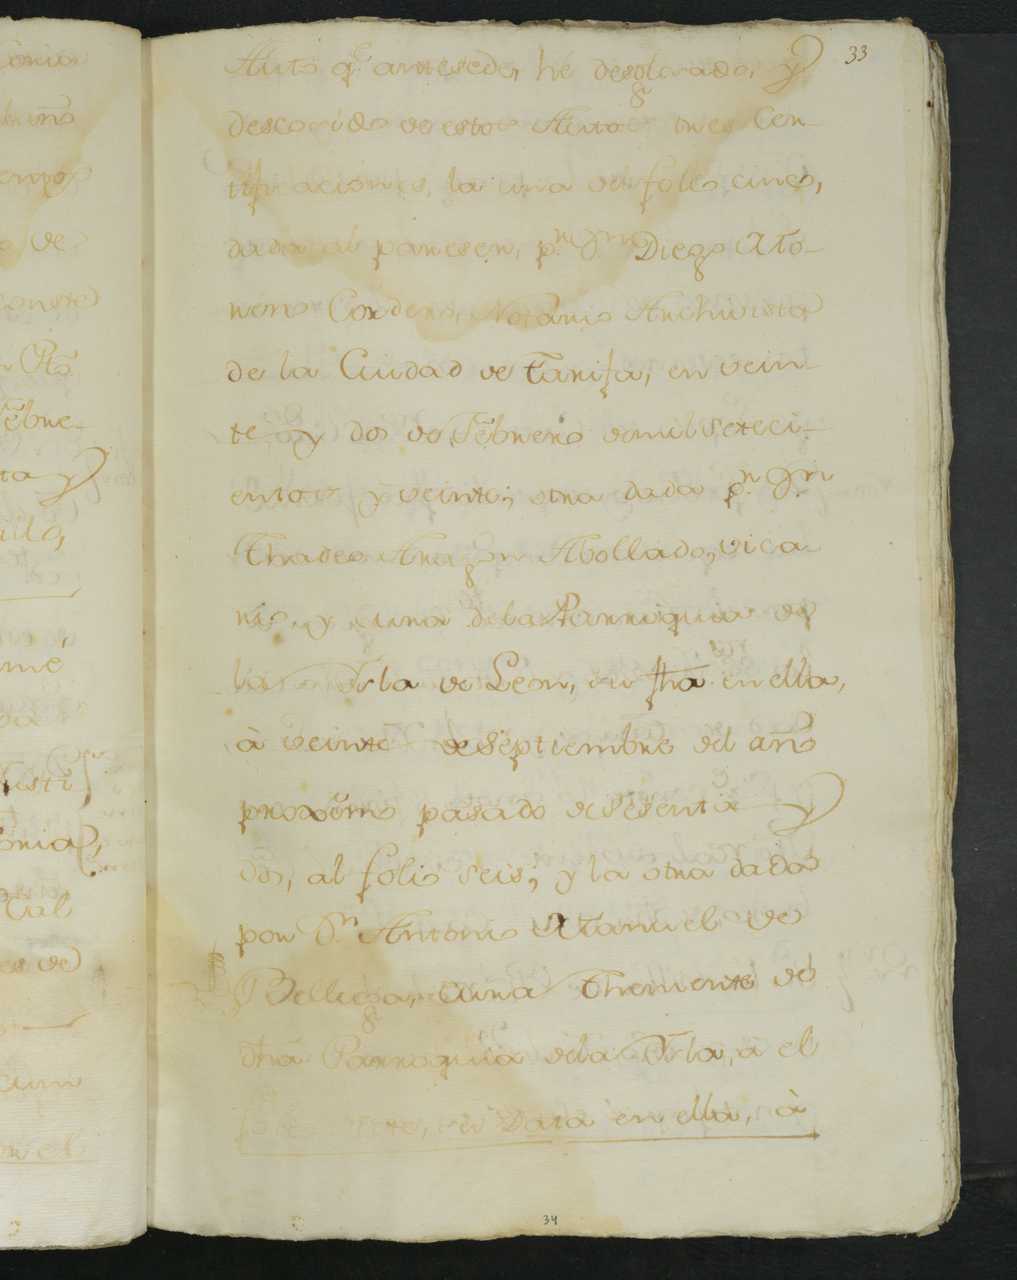 33
Auto q.e antesede, hé desglosado, y
descosido de estos Autos tres Cer-
tificaciones, la una del folio cinco,
dada al pareser, p.r D.n Diego Mo-
reno Cordero, Notario Archivista
de la Ciudad de Tarifa, en vein-
te y dos de Febrero de mil seteci-
entos y veinte; otra dada p.r D.n
Thadeo Aragon Abollado, vica-
rio, y cura de la Parroquia de
la Ysla de Leon, su fha en ella,
à veinte de Septiembre del año
proximo pasado de sesenta y
dos, al folio seis; y la otra dada
por D.n Antonio Manuel de
Bellega, Cura Theniente de
dha Parroquia de la Ysla, a el
folio siete, su Data en ella, à
34